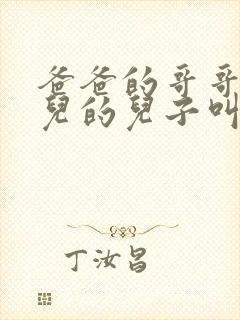 爸爸的哥哥
兒的兒子叫
丁汝昌